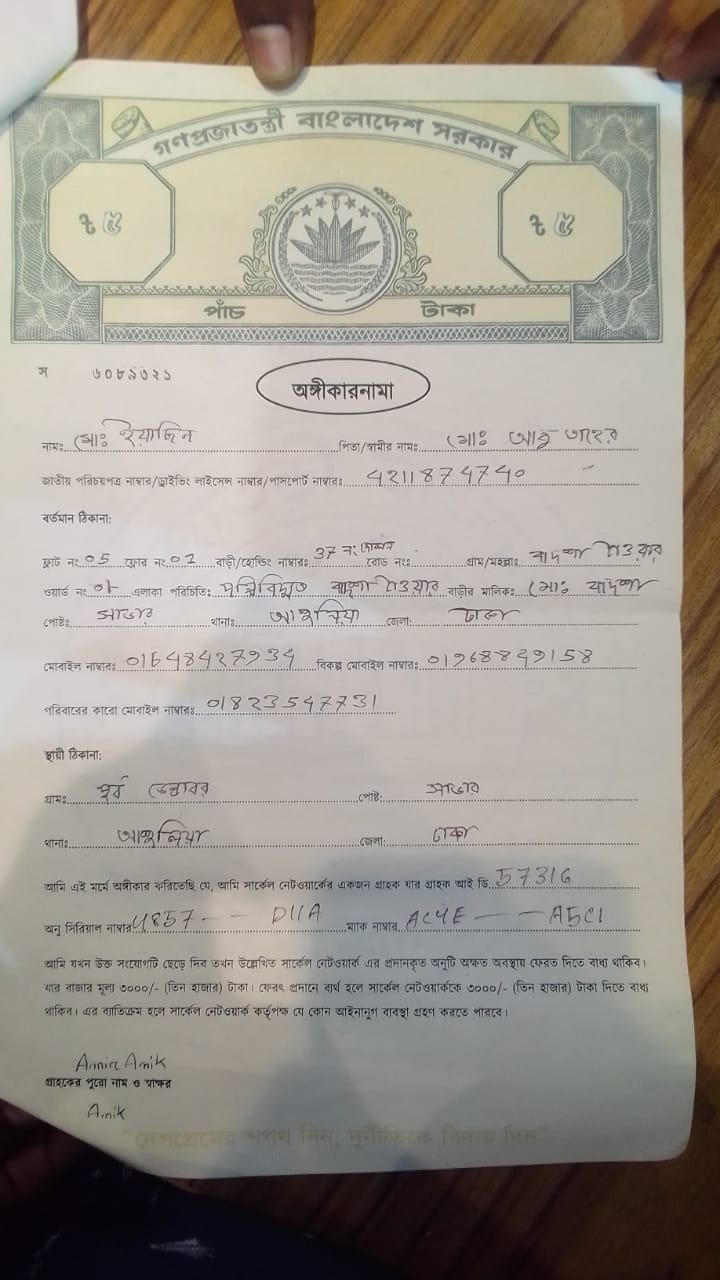 গণপ্রজাতন্ত্রী বাংলাদেশ সরকার
৳ ৫ ৳ ৫
পাঁচ টাকা
স ৬০৮৯৩২১
অঙ্গীকারনামা
নামঃ মোঃ ইয়াছিন পিতা/স্বামীর নামঃ মোঃ আবু তাহের
জাতীয় পরিচয়পত্র নাম্বার/ড্রাইভিং লাইসেন্স নাম্বার/পাসপোর্ট নাম্বারঃ 4211874740
বর্তমান ঠিকানা:
ফ্লাট নং 05 ফ্লোর নং 01 বাড়ী/হোল্ডিং নাম্বারঃ 37 নং রোড নংঃ গ্রাম/মহল্লাঃ বাদশা টাওয়ার
ওয়ার্ড নং এলাকা পরিচিতিঃ পল্লিবিদ্যুত বাদশা টাওয়ার বাড়ীর মালিকঃ মোঃ বাদশা
পোষ্টঃ সাভার থানাঃ আশুলিয়া জেলা: ঢাকা
মোবাইল নাম্বারঃ 01648427934 বিকল্প মোবাইল নাম্বারঃ 01968849158
পরিবারের কারো মোবাইল নাম্বারঃ 01823547731
স্থায়ী ঠিকানা:
গ্রামঃ পূর্ব ডেন্ডাবর পোষ্ট: সাভার
থানাঃ আশুলিয়া জেলা: ঢাকা
আমি এই মর্মে অঙ্গীকার করিতেছি যে, আমি সার্কেল নেটওয়ার্কের একজন গ্রাহক যার গ্রাহক আই ডি 57316
অনু সিরিয়াল নাম্বার 4857-- D11A ম্যাক নাম্বার AC4E -- A5C1
আমি যখন উক্ত সংযোগটি ছেড়ে দিব তখন উল্লেখিত সার্কেল নেটওয়ার্ক এর প্রদানকৃত অনুটি অক্ষত অবস্থায় ফেরত দিতে বাধ্য থাকিব।
যার বাজার মূল্য ৩০০০/- (তিন হাজার) টাকা। ফেরৎ প্রদানে ব্যর্থ হলে সার্কেল নেটওয়ার্ককে ৩০০০/- (তিন হাজার) টাকা দিতে বাধ্য
থাকিব। এর ব্যতিক্রম হলে সার্কেল নেটওয়ার্ক কর্তৃপক্ষ যে কোন আইনানুগ ব্যবস্থা গ্রহণ করতে পারবে।
Amir Anik
গ্রাহকের পুরো নাম ও স্বাক্ষর
Anik
"দেশপ্রেমের শপথ নিন, দুর্নীতিকে বিদায় দিন"